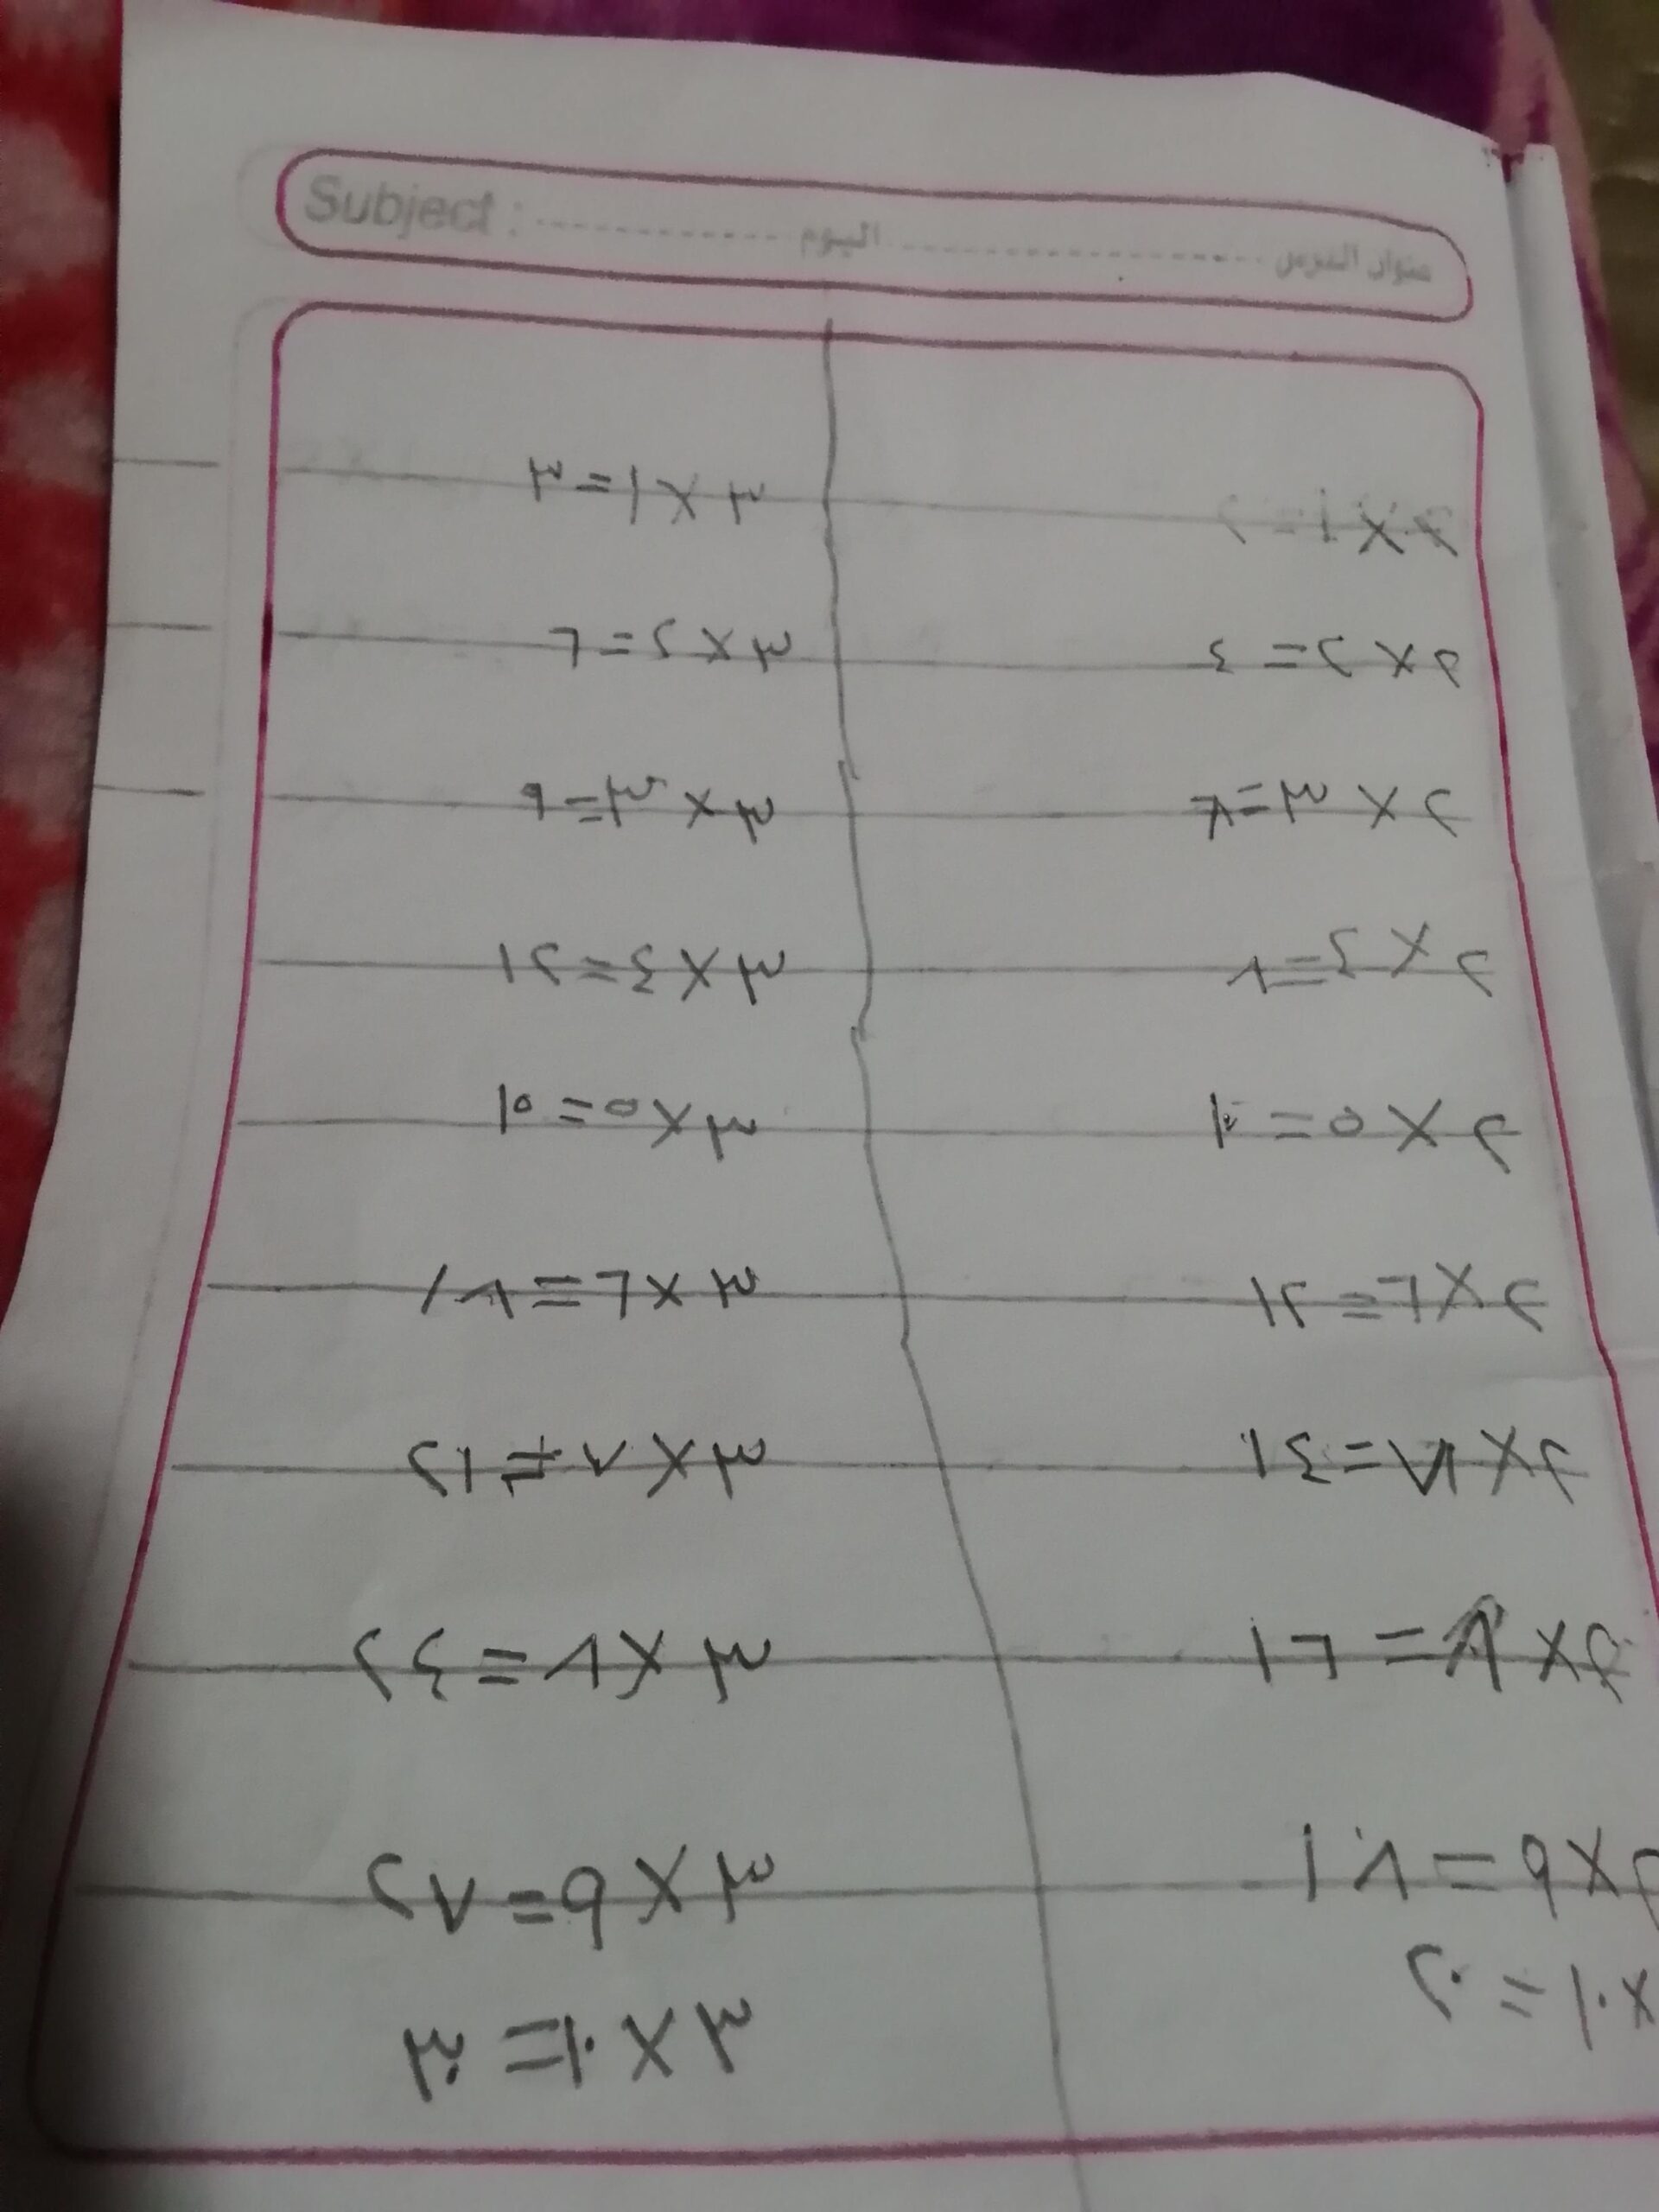 Subject : اليوم عنوان الدرس
٢×١=٢
٢×٢=٤
٢×٣=٦
٢×٤=٨
٢×٥=١٠
٢×٦=١٢
٢×٧=١٤
٢×٨=١٦
٢×٩=١٨
×١٠=٢٠
٣×١=٣
٣×٢=٦
٣×٣=٩
٣×٤=١٢
٣×٥=١٥
٣×٦=١٨
٣×٧=٢١
٣×٨=٢٤
٣×٩=٢٧
٣×١٠=٣٠